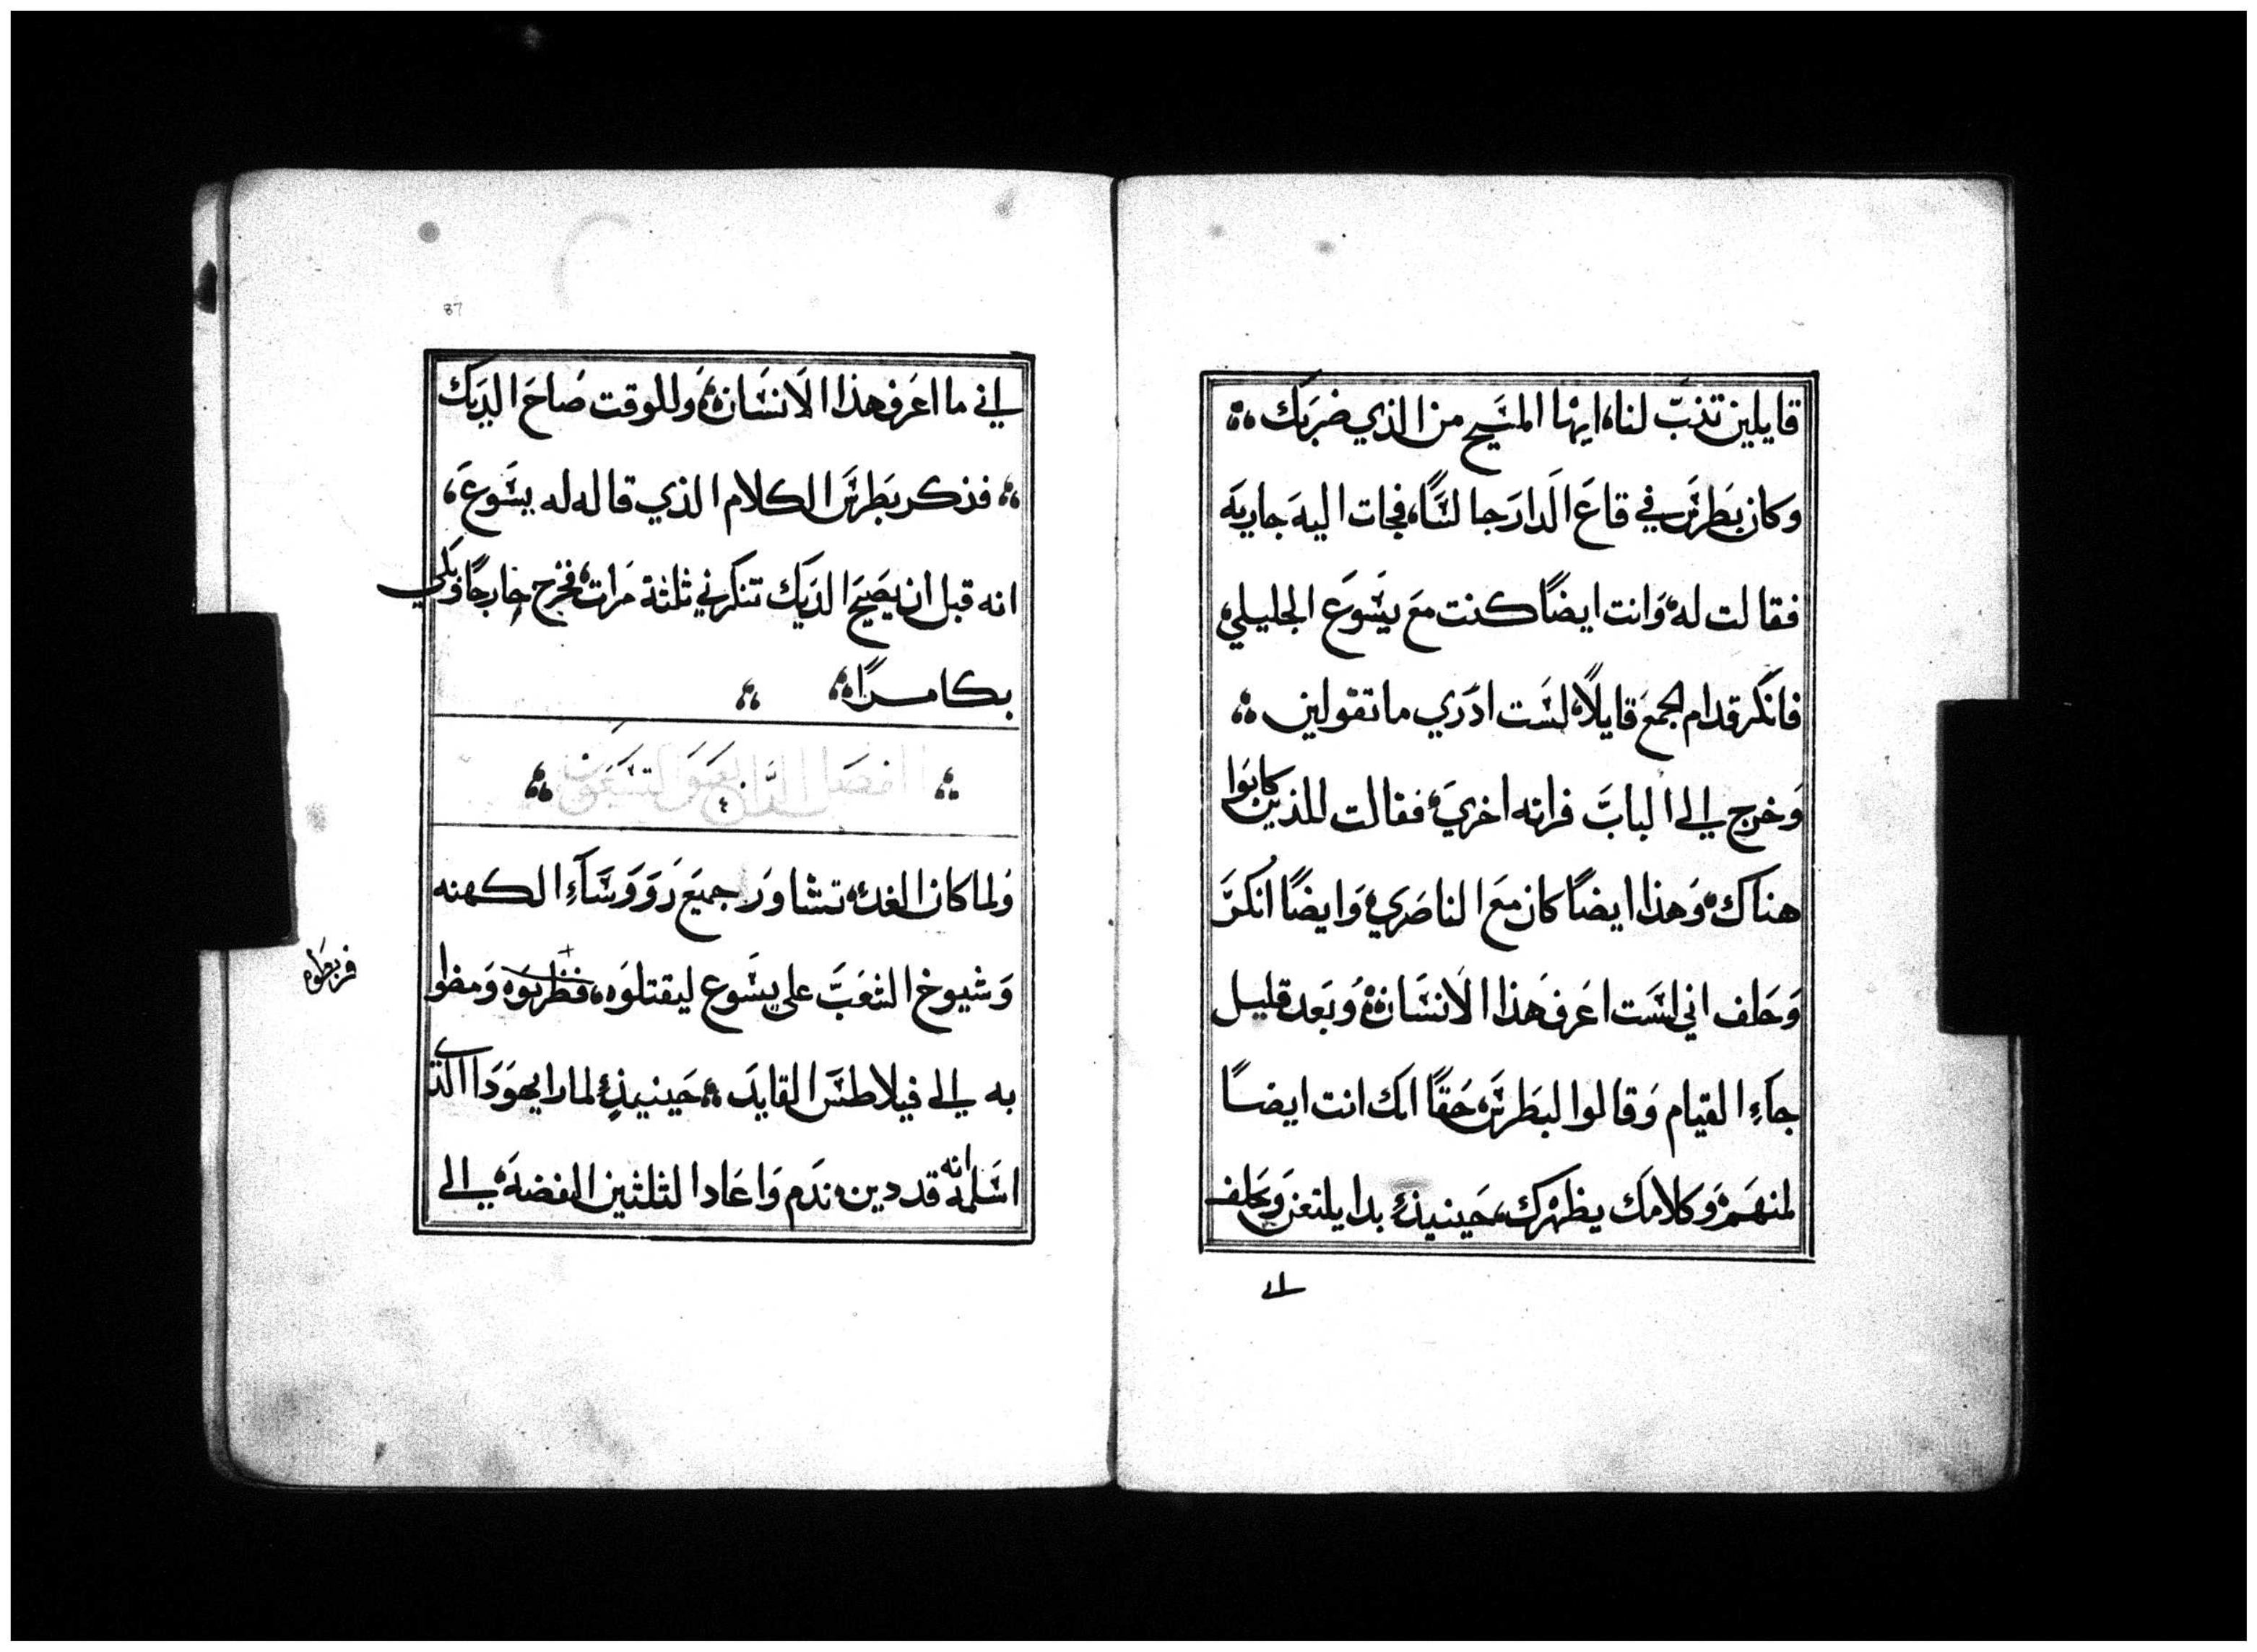 قايلين تنبّ لنا، ايها المسيح من الذي ضربك
وكان بطرس في قاع الدار جالسًا، فجات اليه جاريه
فقالت له وانت ايضًا كنت مع يسوع الجليلي
فانكر قدام الجمع قايلاً لست ادري ما تقولين
وخرج الي الباب فراته اخري فقالت للذين كانوا
هناك وهذا ايضًا كان مع الناصري وايضًا انكر
وحلف اني لست اعرف هذا الانسان وبعد قليل
جآء القيام وقالوا لبطرس حقًا انك انت ايضًا
لمنهم وكلامك يظهرك، حينيذ بدا يلتعن ويحلف
اني
87
اني ما اعرف هذا الانسان وللوقت صاح الديك
فذكر بطرس الكلام الذي قاله له يسوع،
انه قبل ان يصيح الديك تنكرني ثلثة مرات فخرج خارجًا وبكي
بكا مرًا
الفصل الرابع والتسعون
ولما كان الغد تشاور جميع رووسآء الكهنه
وشيوخ الشعب علي يسوع ليقتلوه، فظربوه ومظوا
فربطوه
به الي فيلاطس القايد حينيذ لما راي هودا الذي
اسلمه انه قد دين ندم واعاد الثلثين الفضه الي